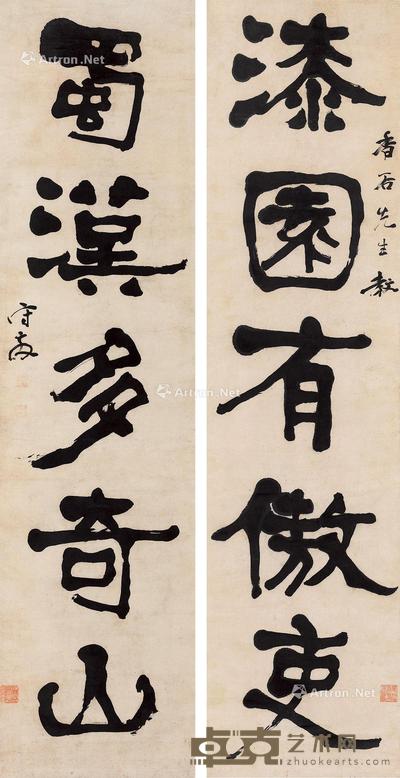 漆園有傲吏
香石先生教
蜀漢多奇山
Artron.Net
Artron.Net
Artron.Net
Artron.Net
卓克艺术网
zhuokearts.com